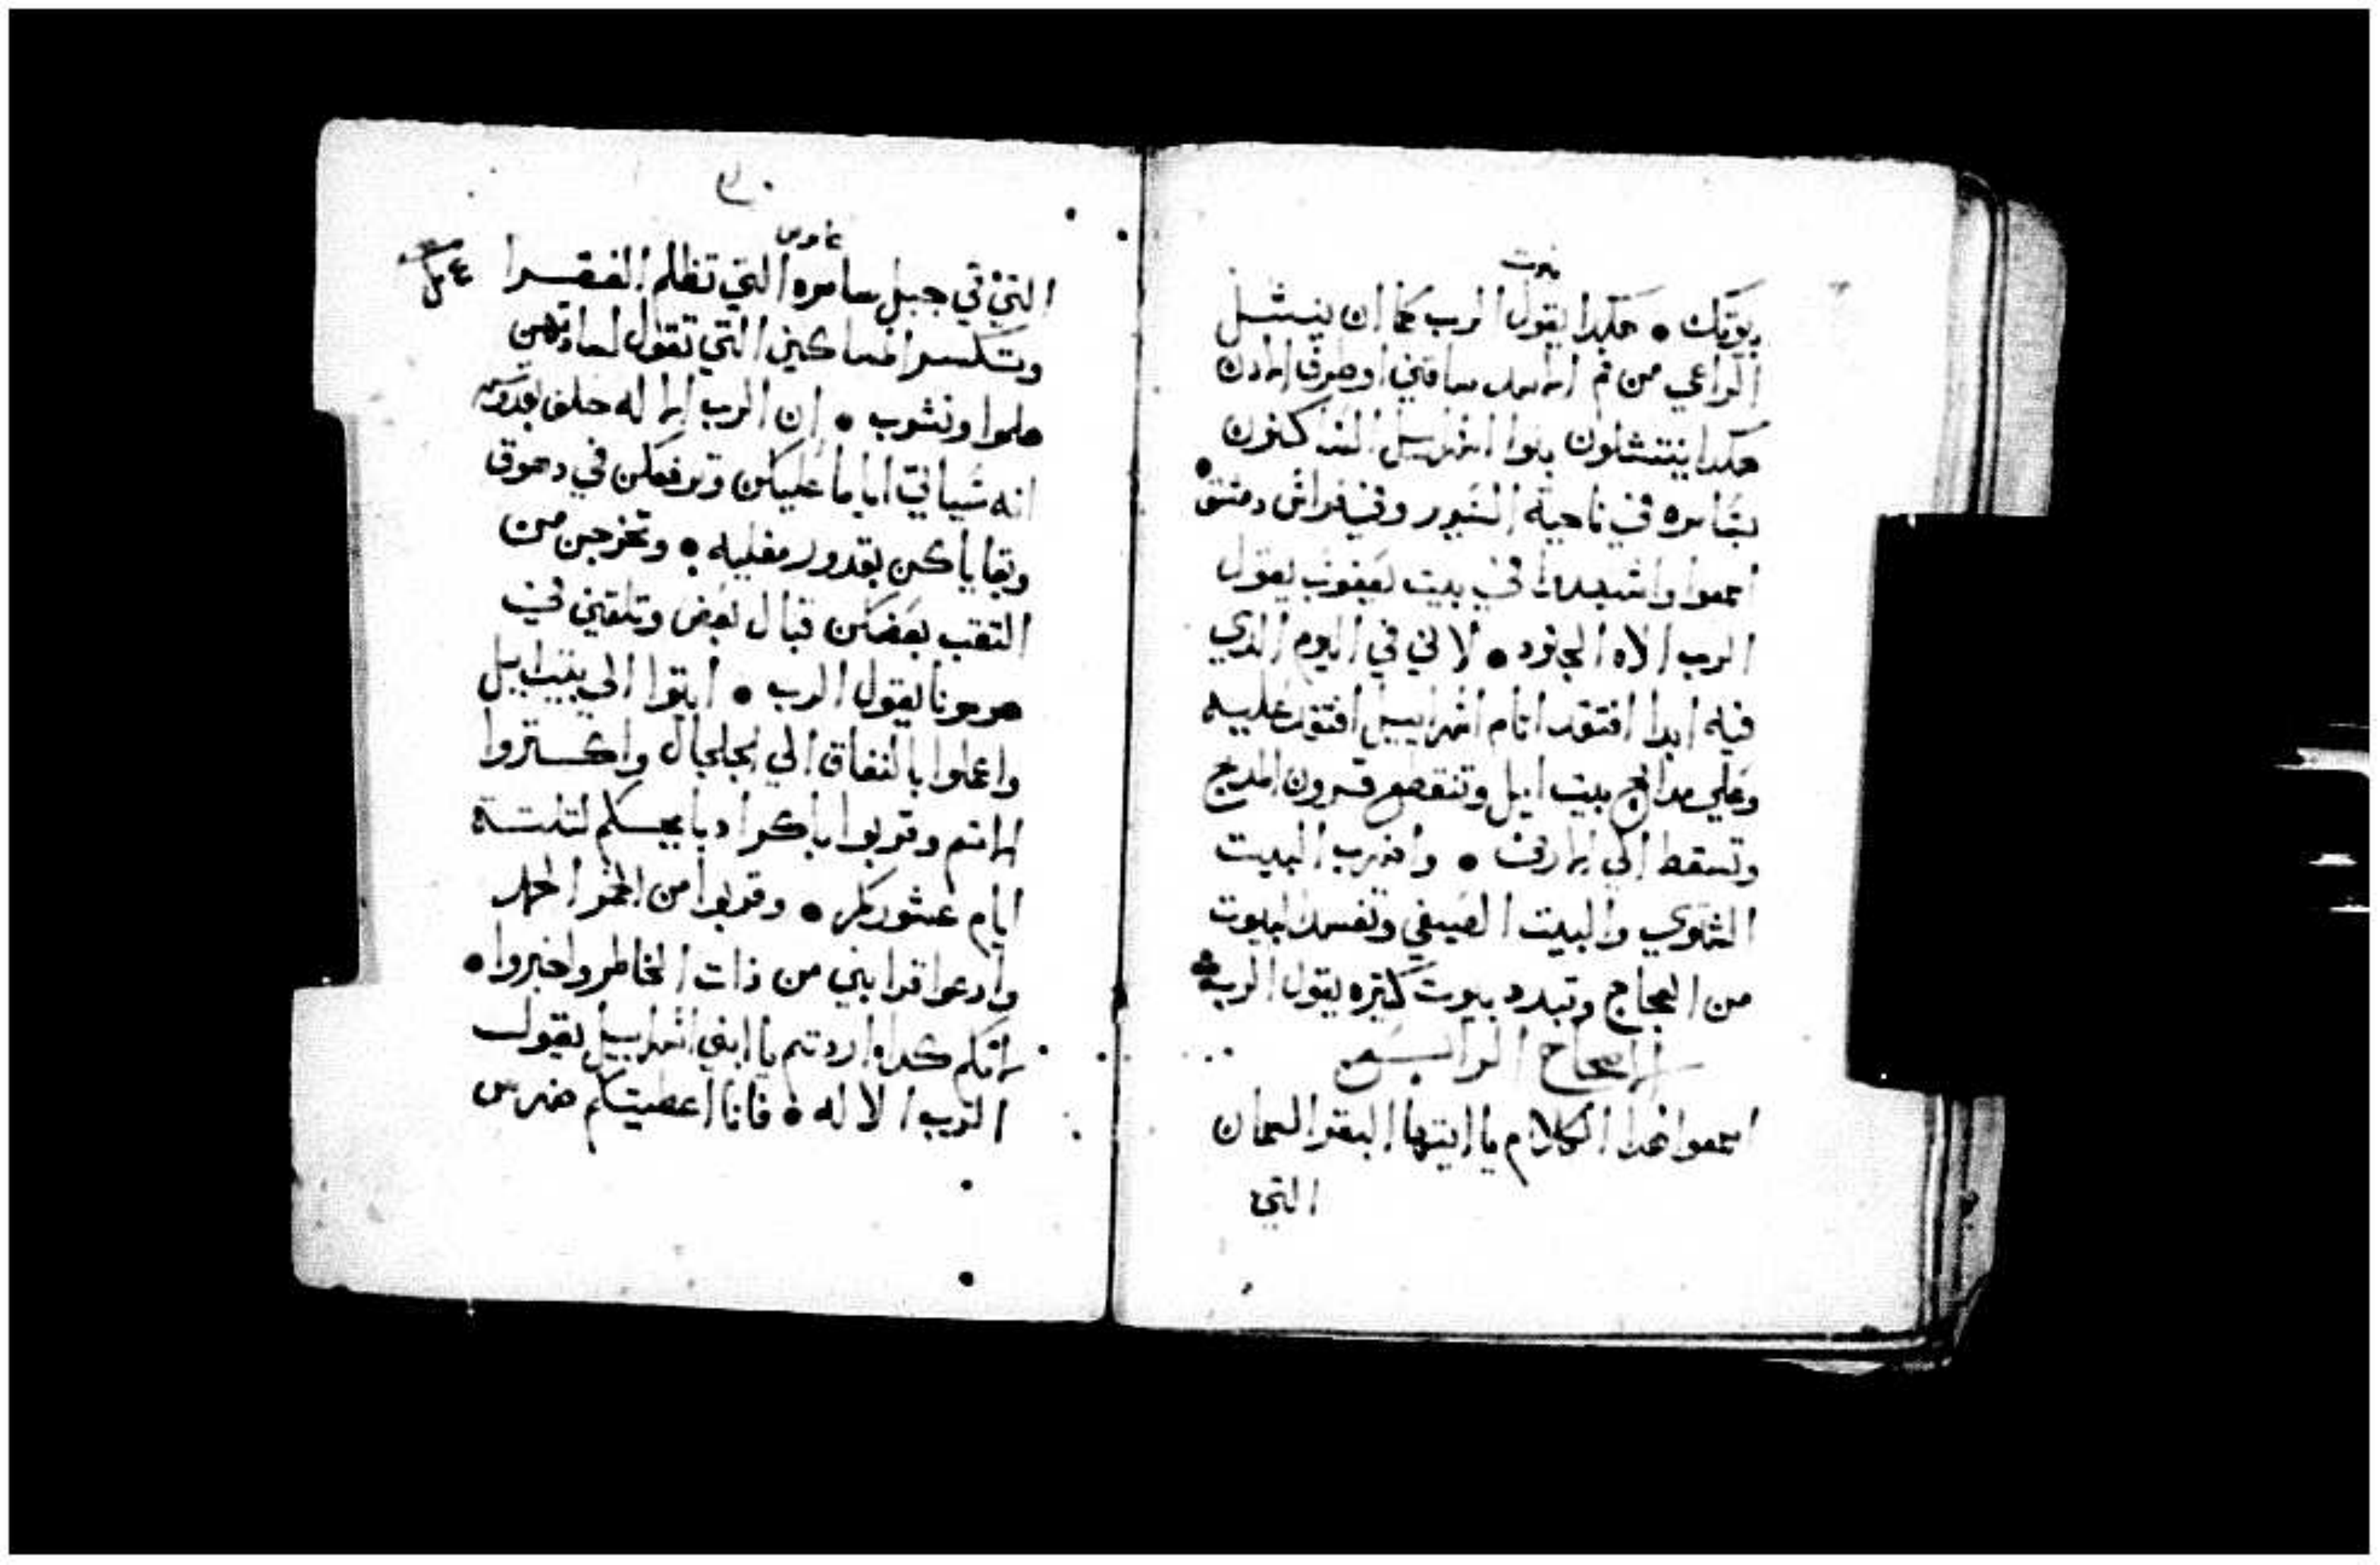 نبوت
بيوتك • هكدا يقول الرب كما ان ينتشل
الراعي من فم الاسد ساقين او طرف الادن
هكدا ينتشلون بنوا اسراييل الساكنون
بسامره في ناحية السرير وفي فراش دمشق •
اسمعوا واشهدوا في بيت يعقوب يقول
الرب الاه الجنود • لاني في اليوم الدي
فيه ابدا افتقد اتام اسراييل افتقد عليه
وعلي مدابح بيت ايل وتنقطع قرون المدبح
وتسقط الي الارض • واضرب البيت
الشتوي والبيت الصيفي وتفسد البيوت
من العجاج وتبدد بيوت كتيره يقول الرب
الاصحاح الرابع
اسمعوا هدا الكلام يا ايتها البقر السمان
التي
عاموص
التي في جبل سامره التي تظلم الفقرا
وتكسر المساكين التي تقول لساداتهن
هلموا ونشرب • ان الرب الاله حلف بقدوسه
انه سياتي اياما عليكن وترفعكن في دهوق
وبقاياكن بقدور مغليه • وتخرجن من
النقب بعضكن قبال بعض وتلقين في
هرمونا يقول الرب • ايتوا الي بيت ايل
واعملوا بالنفاق الي الجلجال واكتروا
الاتم وقربوا باكرا دبايحكم لتلتة
ايام عشوركم • وقربوا من الخمر الحمد
وادعوا قرابين من ذات الخاطر واخبروا •
لانكم كداه اردتم يا ابني اسراييل يقول
الرب الاله • فانا اعطيتكم ضرس